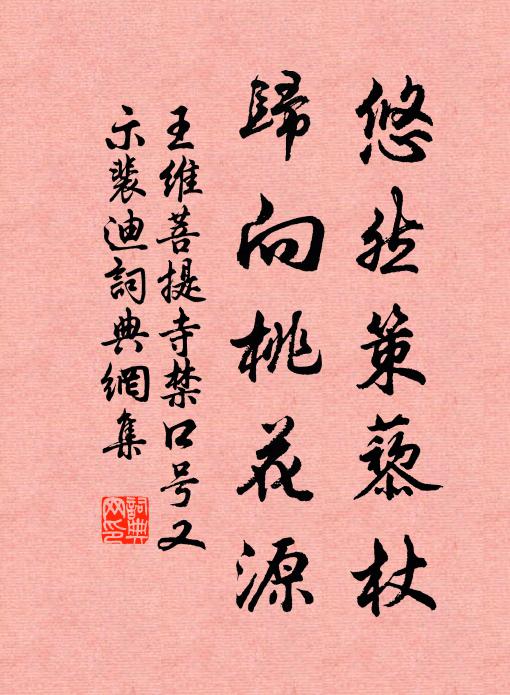 悠然策藜杖
歸向桃花源
王維菩提寺禁口号又
示裴迪詞典網集
詞典
网印